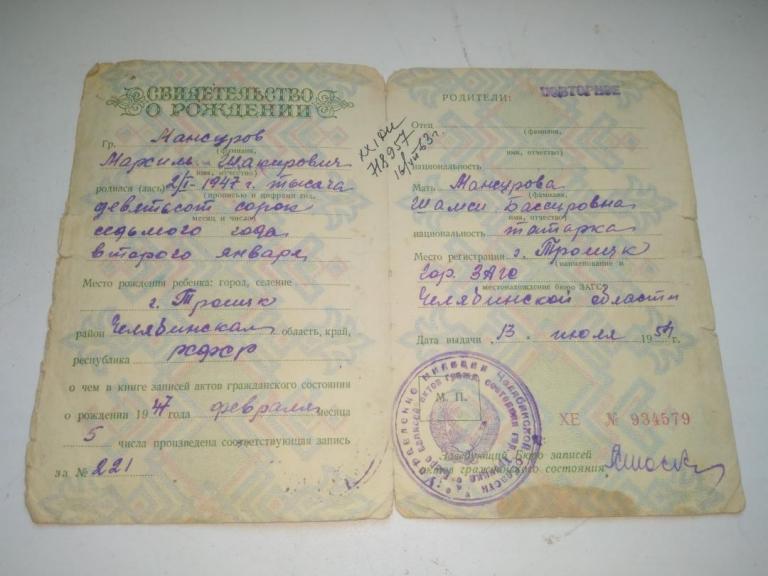 СВИДЕТЕЛЬСТВО
О РОЖДЕНИИ
Гр. Мансуров
(фамилия,
Марсиль Шакирович
имя, отчество)
родился (лась) 2/I-1947 г. тысяча
(прописью и цифрами год,
девятьсот сорок
месяц и число)
седьмого года
второго января
Место рождения ребенка: город, селение
г. Троицк
район Челябинская область, край,
республика РСФСР
о чем в книге записей актов гражданского состояния
о рождении 1947 года февраля месяца
5 числа произведена соответствующая запись
за № 221
718957
РОДИТЕЛИ: ПОВТОРНОЕ
Отец
(фамилия,
имя, отчество)
национальность
Мать Мансурова
(фамилия,
Шамси Бассировна
имя, отчество)
национальность татарка
Место регистрации г. Троицк
(наименование и
Гор. ЗАГС
местонахождение бюро ЗАГС)
Челябинской области
Дата выдачи 13 июля 1954 г.
М. П.
ХЕ № 934579
Заведующий Бюро записей
актов гражданского состояния